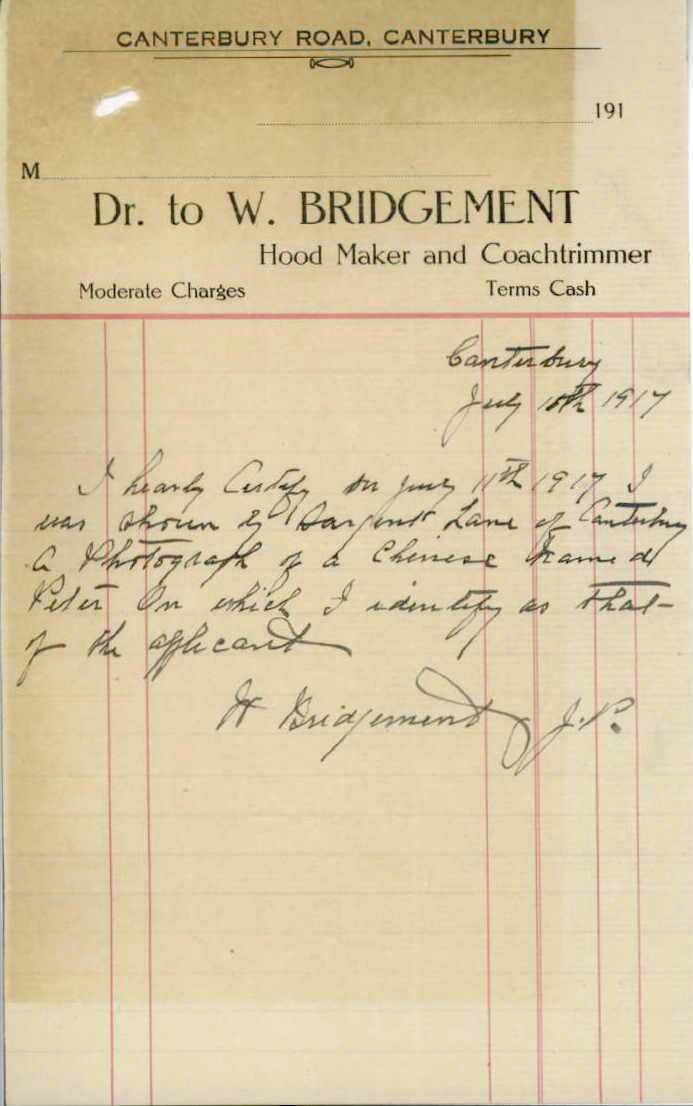 CANTERBURY ROAD, CANTERBURY
191
M
Dr. to W. BRIDGEMENT
Hood Maker and Coachtrimmer
Moderate Charges Terms Cash
Canterbury
July 18th 1917
I hearby Certify on July 11th 1917 I
was shown by Sargent Lane of Canterbury
a Photograph of a Chinese named
Peter On which I identify as that
of the applicant
W Bridgement J.P.